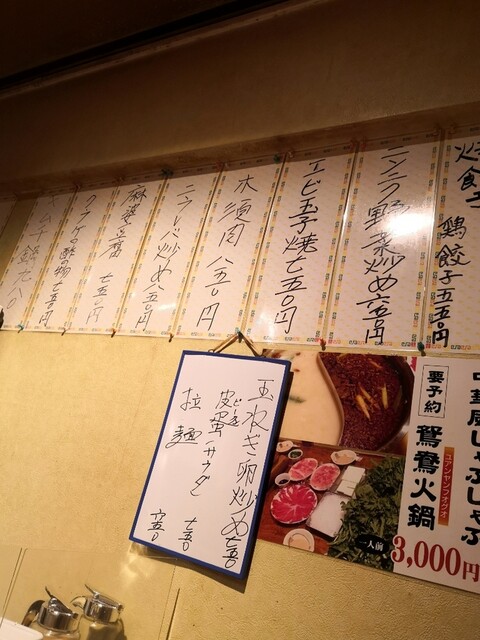 鶏餃子五五〇円
ニンニク野菜炒め六五〇円
エビ玉子焼七五〇円
木須肉 八五〇円
ニラレバ炒め八五〇円
麻婆豆腐 七五〇円
クラゲの酢の物七五〇円
玉ねぎ卵炒め七五〇
皮蛋サラダ 七五〇
拉麺 六五〇
中華風しゃぶしゃぶ
要予約
鴛鴦火鍋
ユアンヤンフオグオ
一人前
3,000円